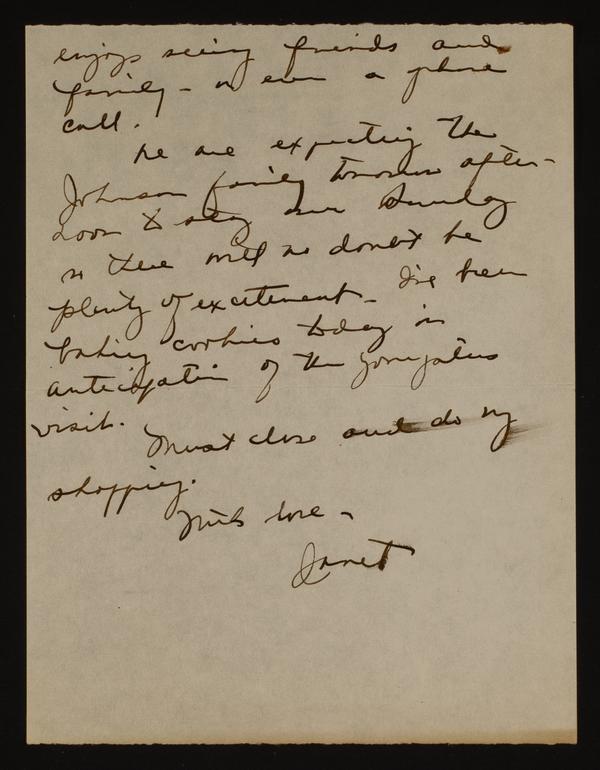 enjoys seeing friends and
family - or even a phone
call.
We are expecting the
Johnson family tomorrow after-
noon to stay over Sunday
so there will no doubt be
plenty of excitement - I've been
baking cookies today in
anticipation of the youngsters
visit.
Must close and do my
shopping.
Much love -
Janet